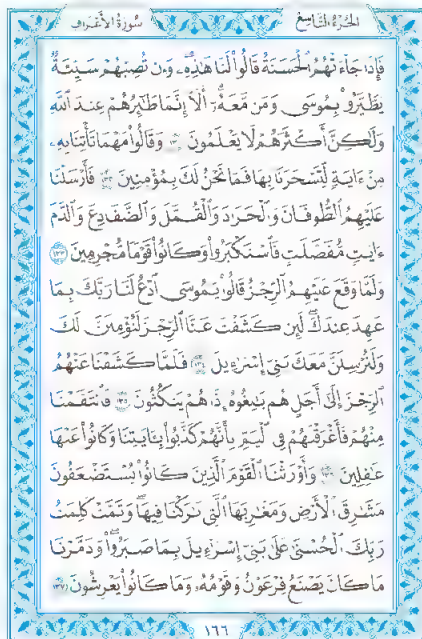 سُورَةُ الأَعْرَافِ الجُزْءُ التَّاسِعُ
فَإِذَا جَآءَتْهُمُ ٱلْحَسَنَةُ قَالُوا۟ لَنَا هَٰذِهِۦ وَإِن تُصِبْهُمْ سَيِّئَةٌ
يَطَّيَّرُوا۟ بِمُوسَىٰ وَمَن مَّعَهُۥٓ أَلَآ إِنَّمَا طَٰٓئِرُهُمْ عِندَ ٱللَّهِ
وَلَٰكِنَّ أَكْثَرَهُمْ لَا يَعْلَمُونَ ١٣١ وَقَالُوا۟ مَهْمَا تَأْتِنَا بِهِۦ
مِنْ ءَايَةٍ لِّتَسْحَرَنَا بِهَا فَمَا نَحْنُ لَكَ بِمُؤْمِنِينَ ١٣٢ فَأَرْسَلْنَا
عَلَيْهِمُ ٱلطُّوفَانَ وَٱلْجَرَادَ وَٱلْقُمَّلَ وَٱلضَّفَادِعَ وَٱلدَّمَ
ءَايَٰتٍ مُّفَصَّلَٰتٍ فَٱسْتَكْبَرُوا۟ وَكَانُوا۟ قَوْمًا مُّجْرِمِينَ ١٣٣
وَلَمَّا وَقَعَ عَلَيْهِمُ ٱلرِّجْزُ قَالُوا۟ يَٰمُوسَى ٱدْعُ لَنَا رَبَّكَ بِمَا
عَهِدَ عِندَكَ لَئِن كَشَفْتَ عَنَّا ٱلرِّجْزَ لَنُؤْمِنَنَّ لَكَ
وَلَنُرْسِلَنَّ مَعَكَ بَنِىٓ إِسْرَٰٓءِيلَ ١٣٤ فَلَمَّا كَشَفْنَا عَنْهُمُ
ٱلرِّجْزَ إِلَىٰٓ أَجَلٍ هُم بَٰلِغُوهُ إِذَا هُمْ يَنكُثُونَ ١٣٥ فَٱنتَقَمْنَا
مِنْهُمْ فَأَغْرَقْنَٰهُمْ فِى ٱلْيَمِّ بِأَنَّهُمْ كَذَّبُوا۟ بِـَٔايَٰتِنَا وَكَانُوا۟ عَنْهَا
غَٰفِلِينَ ١٣٦ وَأَوْرَثْنَا ٱلْقَوْمَ ٱلَّذِينَ كَانُوا۟ يُسْتَضْعَفُونَ
مَشَٰرِقَ ٱلْأَرْضِ وَمَغَٰرِبَهَا ٱلَّتِى بَٰرَكْنَا فِيهَا وَتَمَّتْ كَلِمَتُ
رَبِّكَ ٱلْحُسْنَىٰ عَلَىٰ بَنِىٓ إِسْرَٰٓءِيلَ بِمَا صَبَرُوا۟ وَدَمَّرْنَا
مَا كَانَ يَصْنَعُ فِرْعَوْنُ وَقَوْمُهُۥ وَمَا كَانُوا۟ يَعْرِشُونَ ١٣٧
١٦٦